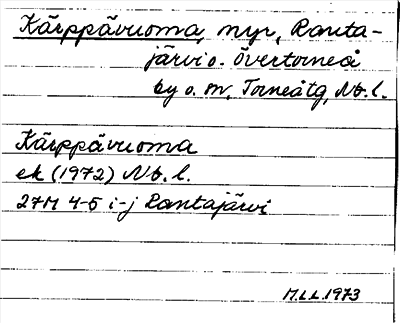 Kärppävuoma, myr, Ranta-
järvi o. Övertorneå
by o. sn, Torneåtg, Nb.l.
Kärppävuoma
ek (1972) Nb.l.
27M 4-5 i-j Rantajärvi
M.L.L.1973